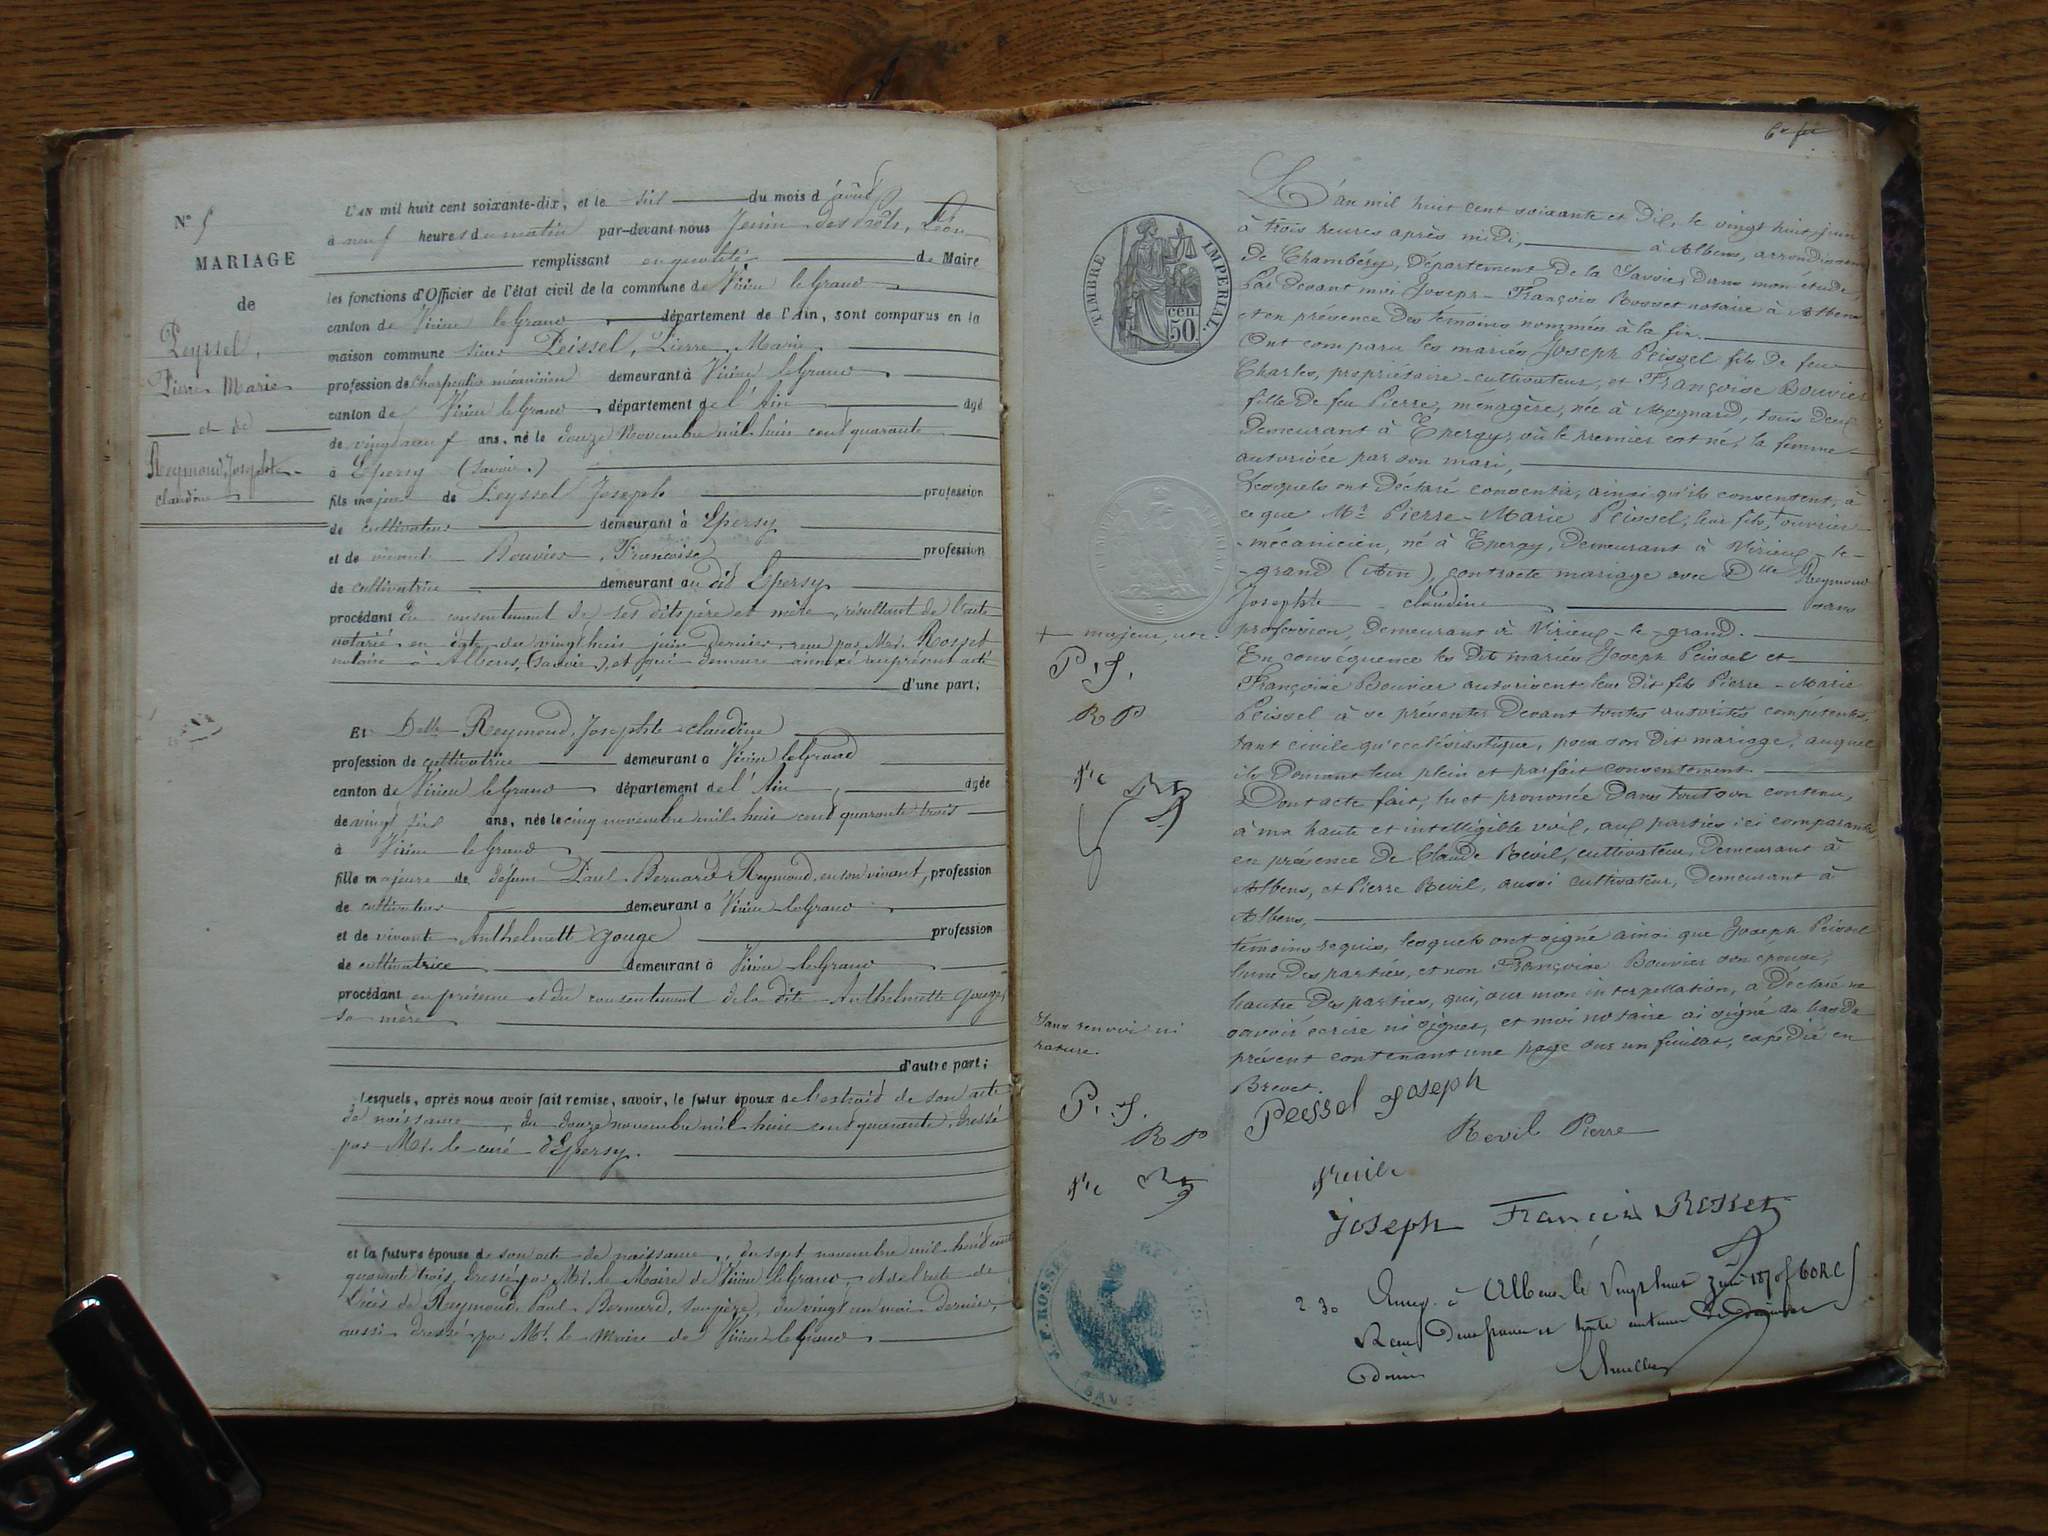 N° 5
MARIAGE
de
Peyssel,
Pierre Marie
et de
Reymond, Josephte
claudine
L'AN mil huit cent soixante-dix, et le six du mois d'août
à neuf heures du matin par-devant nous Jenin des Prôts, Léon
remplissant en qualité de Maire
les fonctions d'Officier de l'état civil de la commune de Virieu le Grand
canton de Virieu le Grand département de l'Ain, sont comparus en la
maison commune sieur Peissel, Pierre Marie
profession de charpentier mécanicien demeurant à Virieu le Grand
canton de Virieu le Grand département de l'Ain agé
de vingt neuf ans, né le douze Novembre mil huit cent quarante
à Epersy (Savoie)
fils majeur de Peyssel Joseph profession
de cultivateur demeurant à Epersy
et de vivante Bouvier Françoise profession
de cultivatrice demeurant au dit Epersy
procédant du consentement de ses dits père et mère, résultant de l'acte
notarié en date du vingt huit juin dernier, reçu par Me. Rosset
notaire à Albens, (Savoie), et qui demeure annexé au présent acte
d'une part;
Et Delle Reymond, Josephte claudine
profession de cultivatrice demeurant à Virieu le Grand
canton de Virieu le Grand département de l'Ain agée
de vingt six ans, née le cinq novembre mil huit cent quarante trois
à Virieu le Grand
fille majeure de défunt Paul Bernard Reymond, en son vivant, profession
de cultivateur demeurant à Virieu le Grand
et de vivante Anthelmette Gouge profession
de cultivatrice demeurant à Virieu le Grand
procédant en présence et du consentement de la dite Anthelmette Gouge,
sa mère
d'autre part;
Lesquels, après nous avoir fait remise, savoir, le futur époux de l'extrait de son acte
de naissance, du douze novembre mil huit cent quarante, dressé
par Mr. le curé d'Epersy.
et la future épouse de son acte de naissance, du sept novembre mil huit cent
quarante trois, dressé par Mr. le Maire de Virieu le Grand, et de l'acte de
décès de Reymond Paul Bernard, son père, du vingt un mai dernier,
aussi dressé par Mr. le Maire de Virieu le Grand
TIMBRE IMPERIAL
50 cen.
L'an mil huit cent soixante et dix, le vingt huit juin
à trois heures après midi, à Albens, arrondissement
de Chambéry, Département de la Savoie, dans mon étude,
Par devant moi Joseph-François Rosset notaire à Albens
et en présence des témoins nommés à la fin.
Ont comparu les mariés Joseph Peissel fils de feu
Charles, propriétaire-cultivateur, et Françoise Bouvier
fille de feu Pierre, ménagère, née à Mognard, tous deux
demeurant à Epersy, où le premier est né; la femme
autorisée par son mari,
Lesquels ont déclaré consentir, ainsi qu'ils consentent, à
ce que Mr. Pierre-Marie Peissel, leur fils, + ouvrier-
-mécanicien, né à Epersy, demeurant à Virieux-le-
-grand (Ain), contracte mariage avec Dlle Reymond
Josephte claudine sans
+ majeur,
profession, demeurant à Virieux-le-grand.
P. J.
R P
En conséquence les dits mariés Joseph Peissel et
Françoise Bouvier autorisent leur dit fils Pierre-Marie
Peissel à se présenter devant toutes autorités compétentes,
tant civile qu'ecclésiastique, pour son dit mariage, auquel
ils donnent leur plein et parfait consentement
Dont acte fait, lu et prononcé dans tout son contenu,
à ma haute et intelligible voix, aux parties ici comparantes
en présence de Claude Revil, cultivateur, demeurant à
Albens, et Pierre Revil, aussi cultivateur, demeurant à
Albens,
témoins requis, lesquels ont signé ainsi que Joseph Peissel
l'une des parties, et non Françoise Bouvier son épouse,
l'autre des parties, qui, sur mon interpellation, a déclaré ne
savoir écrire ni signer, et moi notaire ai signé au bas du
présent contenant une page sur un feuillet, expédié en
Brevet.
Sans renvoi ni
rature.
P. J.
R P
Peissel Joseph
Revil Pierre
Joseph François Rosset
J. F. ROSSET
Enreg. à Albens le vingt huit juin 1870 f 60 R C
2 30 Reçu deux francs et trente centimes